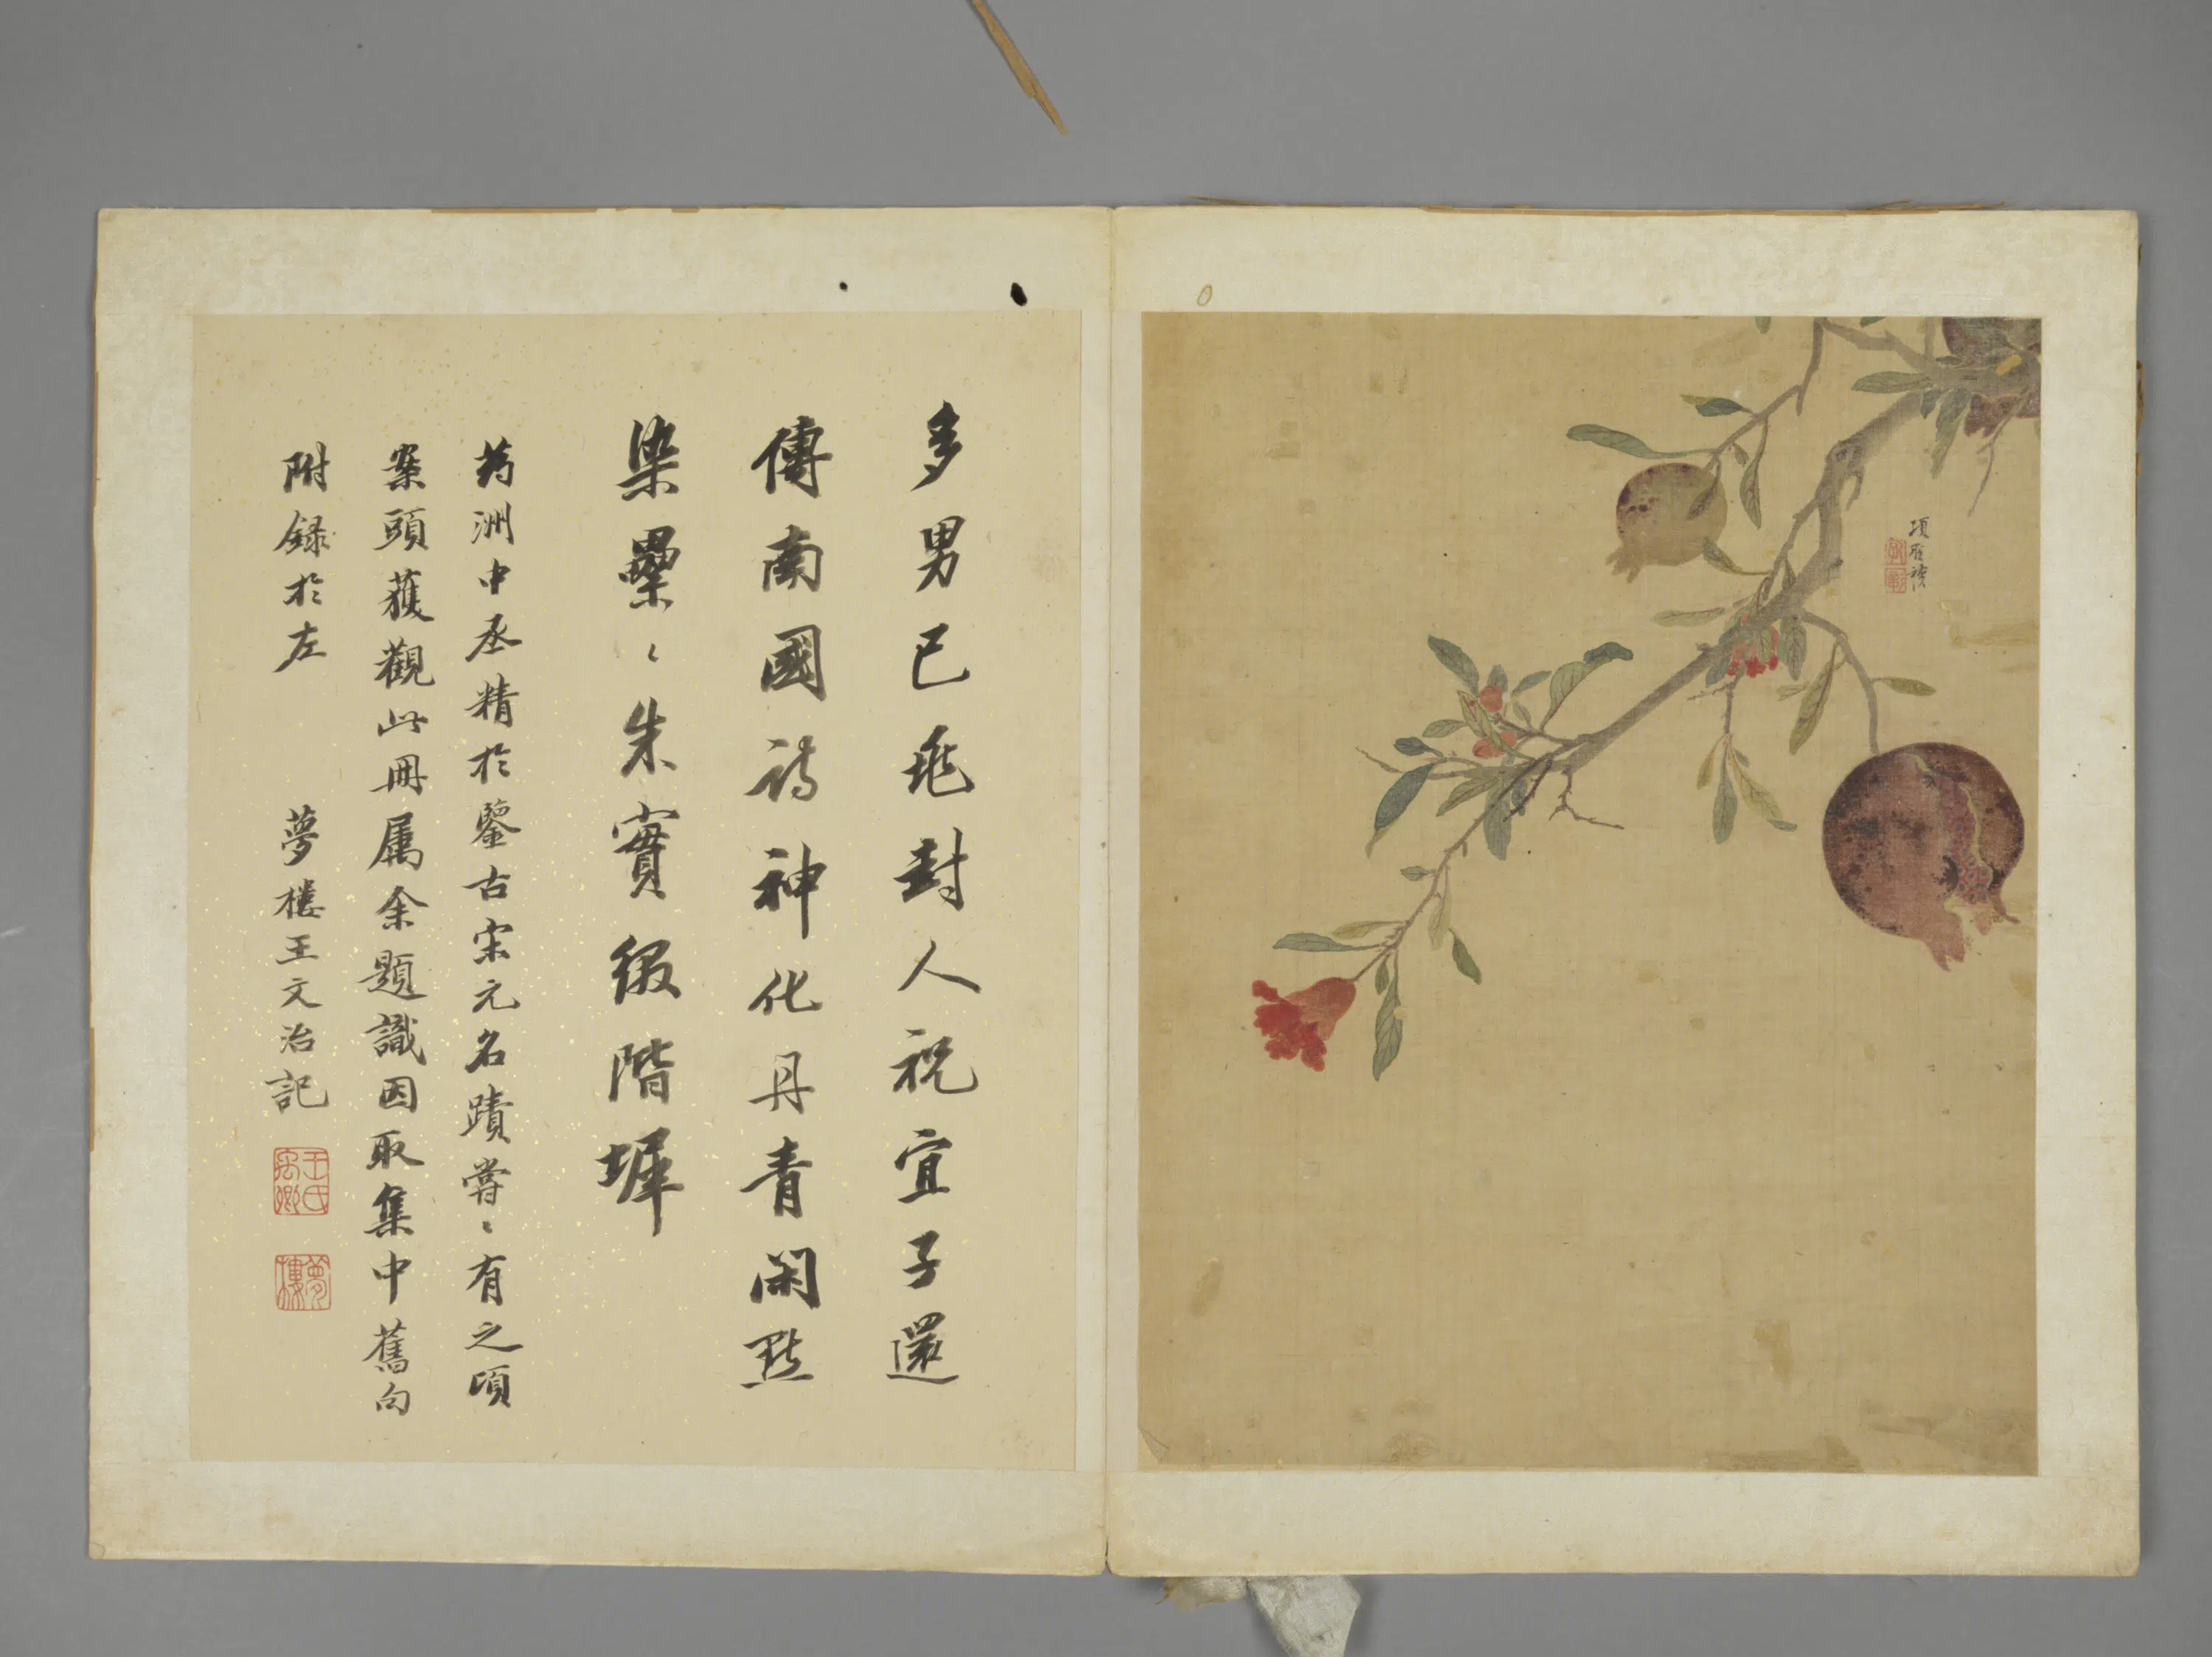 項聖謨
多男已兆封人祝宜子還
傳南國詩神化丹青閑點
染纍〻朱實綴階墀
葯洲中丞精於鑒古宋元名蹟嘗〻有之頃
案頭獲觀此冊屬余題識因取集中舊句
附録於左 夢樓王文治記
王氏禹卿
夢樓